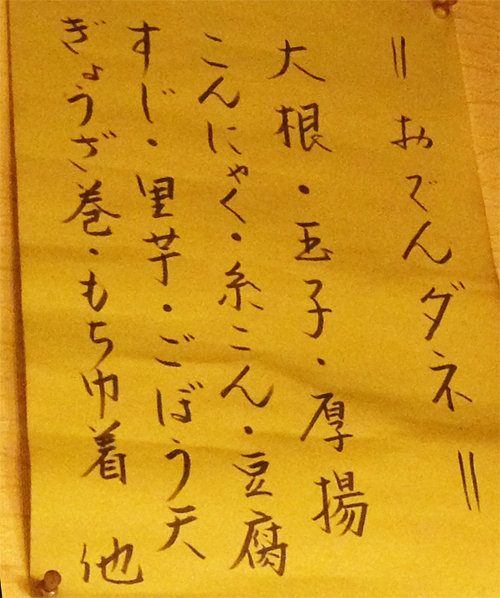 ＝おでんダネ＝
大根・玉子・厚揚
こんにゃく・糸こん・豆腐
すじ・里芋・ごぼう天
ぎょうざ巻・もち巾着 他